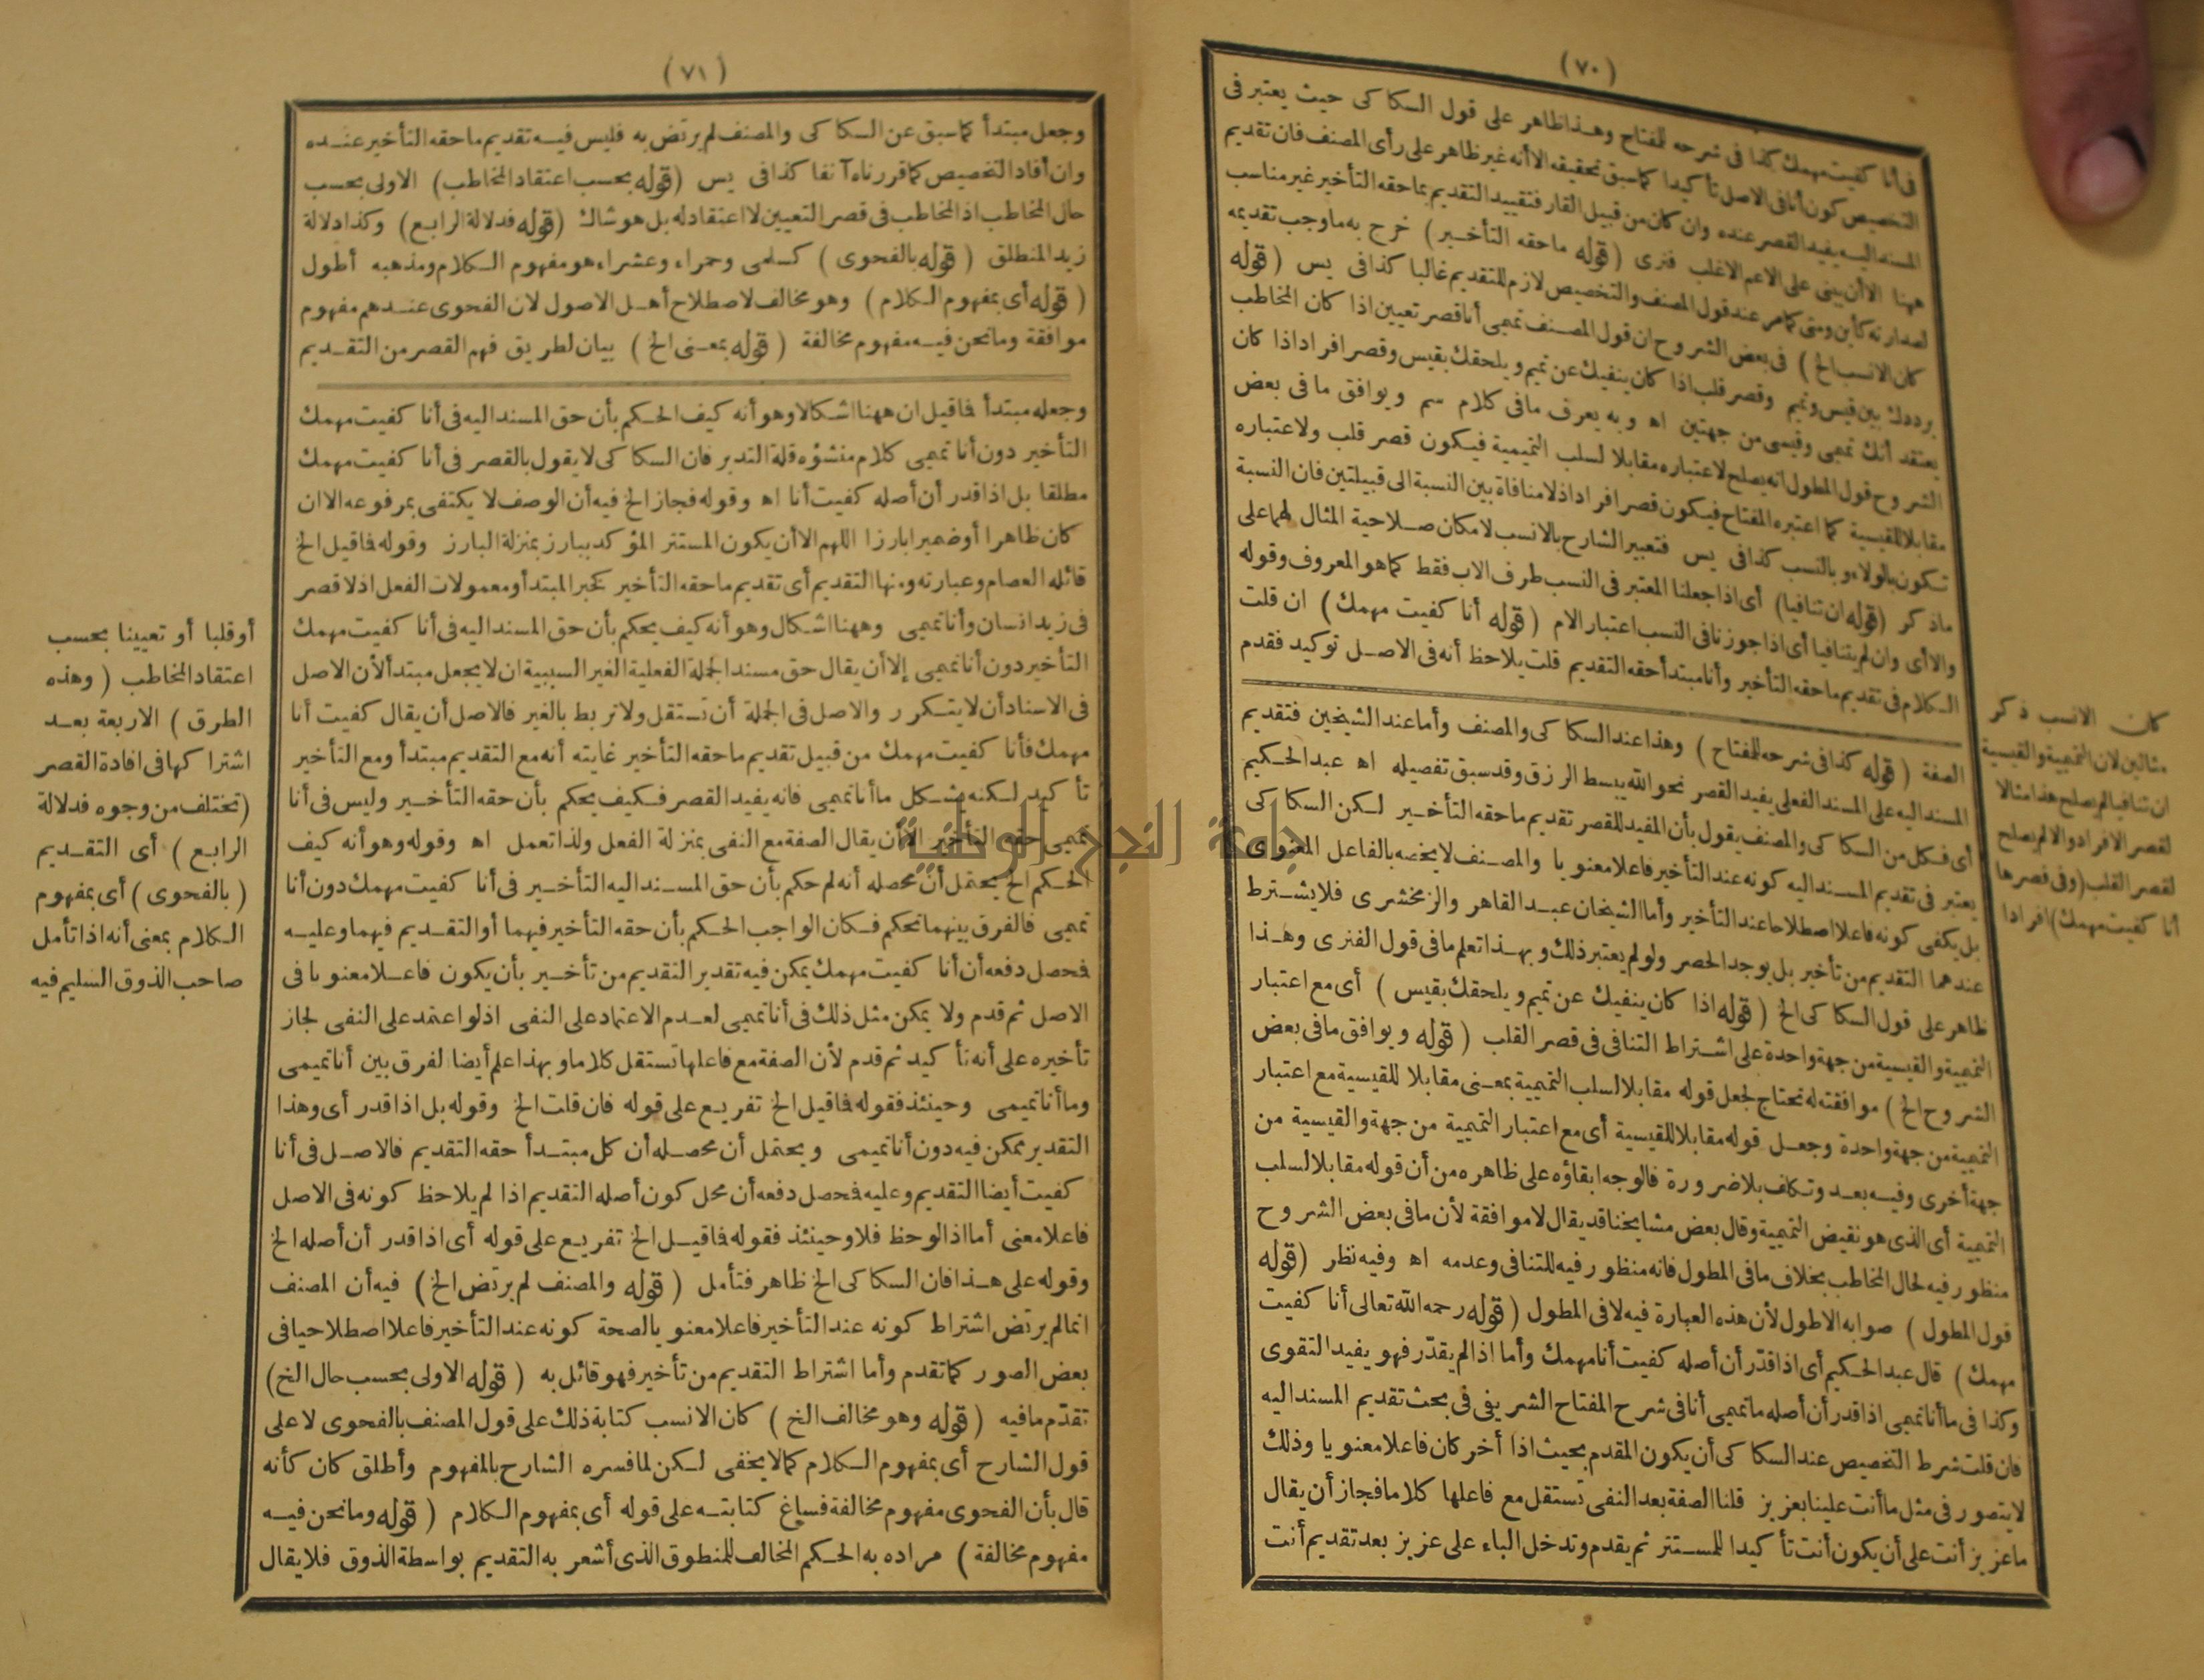 (٧٠)
فى أنا كفيت مهمك كذا فى شرحه للمفتاح وهذا ظاهر على قول السكاكى حيث يعتبر فى
التخصيص كون أنا فى الاصل تأكيدا كما سبق تحقيقه الا أنه غير ظاهر على رأى المصنف فان تقديم
المسند اليه يفيد القصر عنده وان كان من قبيل القار فتقييد التقديم بما حقه التأخير غير مناسب
ههنا الا أن يبنى على الاعم الاغلب فنرى (قوله ما حقه التأخير) خرج به ما وجب تقديمه
لصدارته كأين ومتى كما مر عند قول المصنف والتخصيص لازم للتقديم غالبا كذا فى يس (قوله
كان الانسب الخ) فى بعض الشروح ان قول المصنف تميمى أنا قصر تعيين اذا كان المخاطب
يرددك بين قيس وتميم وقصر قلب اذا كان ينفيك عن تميم ويلحقك بقيس وقصر افراد اذا كان
يعتقد أنك تميمى وقيسى من جهتين اه وبه يعرف ما فى كلام سم ويوافق ما فى بعض
الشروح قول المطول انه يصلح لاعتباره مقابلا لسلب التميمية فيكون قصر قلب ولاعتباره
مقابلا للقيسية كما اعتبره المفتاح فيكون قصر افراد اذ لا منافاة بين النسبة الى قبيلتين فان النسبة
تكون بالولاء وبالنسب كذا فى يس فتعبير الشارح بالانسب لامكان صلاحية المثال لهما على
ما ذكر (قوله ان تنافيا) أى اذا جعلنا المعتبر فى النسب طرف الاب فقط كما هو المعروف وقوله
والا أى وان لم يتنافيا أى اذا جوزنا فى النسب اعتبار الام (قوله أنا كفيت مهمك) ان قلت
الكلام فى تقديم ما حقه التأخير وأنا مبتدأ حقه التقديم قلت يلاحظ أنه فى الاصل توكيد فقدم
الصفة (قوله كذا فى شرحه للمفتاح) وهذا عند السكاكى والمصنف وأما عند الشيخين فتقديم
المسند اليه على المسند الفعلى يفيد القصر نحو الله يبسط الرزق وقد سبق تفصيله اه عبد الحكيم
أى فكل من السكاكى والمصنف يقول بأن المفيد للقصر تقديم ما حقه التأخير لكن السكاكى
يعتبر فى تقديم المسند اليه كونه عند التأخير فاعلا معنويا والمصنف لا يخصه بالفاعل المعنوى
بل يكفى كونه فاعلا اصطلاحا عند التأخير وأما الشيخان عبد القاهر والزمخشرى فلا يشترط
عندهما التقديم من تأخير بل يوجد الحصر ولو لم يعتبر ذلك وبهذا تعلم ما فى قول الفنرى وهذا
ظاهر على قول السكاكى الخ (قوله اذا كان ينفيك عن تميم ويلحقك بقيس) أى مع اعتبار
التميمية والقيسية من جهة واحدة على اشتراط التنافى فى قصر القلب (قوله ويوافق ما فى بعض
الشروح الخ) موافقته له تحتاج لجعل قوله مقابلا لسلب التميمية بمعنى مقابلا للقيسية مع اعتبار
التميمية من جهة واحدة وجعل قوله مقابلا للقيسية أى مع اعتبار التميمية من جهة والقيسية من
جهة أخرى وفيه بعد وتكلف بلا ضرورة فالوجه ابقاؤه على ظاهره من أن قوله مقابلا لسلب
التميمية أى الذى هو نقيض التميمية وقال بعض مشايخنا قد يقال لا موافقة لأن ما فى بعض الشروح
منظور فيه لحال المخاطب بخلاف ما فى المطول فانه منظور فيه للتنافى وعدمه اه وفيه نظر (قوله
قول المطول) صوابه الاطول لأن هذه العبارة فيه لا فى المطول (قوله رحمه الله تعالى أنا كفيت
مهمك) قال عبد الحكيم أى اذا قدّر أن أصله كفيت أنا مهمك وأما اذا لم يقدّر فهو يفيد التقوى
وكذا فى ما أنا تميمى اذا قدر أن أصله ما تميمى أنا فى شرح المفتاح الشريفى فى بحث تقديم المسند اليه
فان قلت شرط التخصيص عند السكاكى أن يكون المقدم بحيث اذا أخر كان فاعلا معنويا وذلك
لا يتصور فى مثل ما أنت علينا بعزيز قلنا الصفة بعد النفى تستقل مع فاعلها كلاما فجاز أن يقال
ما عزيز أنت على أن يكون أنت تأكيدا للمستتر ثم يقدم وتدخل الباء على عزيز بعد تقديم أنت
كان الانسب ذكر
مثالين لان التميمية والقيسية
ان تنافيا لم يصلح هذا مثالا
لقصر الافراد والا لم يصلح
لقصر القلب (وفى قصرها
أنا كفيت مهمك) افرادا
(٧١)
وجعل مبتدأ كما سبق عن السكاكى والمصنف لم يرتض به فليس فيه تقديم ما حقه التأخير عنده
وان أفاد التخصيص كما قررناه آنفا كذا فى يس (قوله بحسب اعتقاد المخاطب) الاولى بحسب
حال المخاطب اذ المخاطب فى قصر التعيين لا اعتقاد له بل هو شاك (قوله فدلالة الرابع) وكذا دلالة
زيد المنطلق (قوله بالفحوى) كسلمى وحمراء وعشراء هو مفهوم الكلام ومذهبه أطول
(قوله أى بمفهوم الكلام) وهو مخالف لاصطلاح أهل الاصول لان الفحوى عندهم مفهوم
موافقة وما نحن فيه مفهوم مخالفة (قوله بمعنى الخ) بيان لطريق فهم القصر من التقديم
وجعله مبتدأ فما قيل ان ههنا اشكالا وهو أنه كيف الحكم بأن حق المسند اليه فى أنا كفيت مهمك
التأخير دون أنا تميمى كلام منشؤه قلة التدبر فان السكاكى لا يقول بالقصر فى أنا كفيت مهمك
مطلقا بل اذا قدر أن أصله كفيت أنا اه وقوله فجاز الخ فيه أن الوصف لا يكتفى بمرفوعه الا ان
كان ظاهرا أو ضميرا بارزا اللهم الا أن يكون المستتر المؤكد ببارز بمنزلة البارز وقوله فما قيل الخ
قائله العصام وعبارته ومنها التقديم أى تقديم ما حقه التأخير كخبر المبتدأ ومعمولات الفعل اذ لا قصر
فى زيد انسان وأنا تميمى وههنا اشكال وهو أنه كيف يحكم بأن حق المسند اليه فى أنا كفيت مهمك
التأخير دون أنا تميمى إلا أن يقال حق مسند الجملة الفعلية الغير السببية ان لا يجعل مبتدأ لأن الاصل
فى الاسناد أن لا يتكرر والاصل فى الجملة أن تستقل ولا تربط بالغير فالاصل أن يقال كفيت أنا
مهمك فأنا كفيت مهمك من قبيل تقديم ما حقه التأخير غايته أنه مع التقديم مبتدأ ومع التأخير
تأكيد لكنه يشكل ما أنا تميمى فانه يفيد القصر فكيف يحكم بأن حقه التأخير وليس فى أنا
تميمى حقه التأخير الا أن يقال الصفة مع النفى بمنزلة الفعل ولذا تعمل اه وقوله وهو أنه كيف
الحكم الخ يحتمل أن محصله أنه لم حكم بأن حق المسند اليه التأخير فى أنا كفيت مهمك دون أنا
تميمى فالفرق بينهما تحكم فكان الواجب الحكم بأن حقه التأخير فيهما أو التقديم فيهما وعليه
فحصل دفعه أن أنا كفيت مهمك يمكن فيه تقدير التقديم من تأخير بأن يكون فاعلا معنويا فى
الاصل ثم قدم ولا يمكن مثل ذلك فى أنا تميمى لعدم الاعتماد على النفى اذ لو اعتمد على النفى لجاز
تأخيره على أنه تأكيد ثم قدم لأن الصفة مع فاعلها تستقل كلاما وبهذا علم أيضا الفرق بين أنا تميمى
وما أنا تميمى وحينئذ فقوله فما قيل الخ تفريع على قوله فان قلت الخ وقوله بل اذا قدر أى وهذا
التقدير ممكن فيه دون أنا تميمى ويحتمل أن محصله أن كل مبتدأ حقه التقديم فالاصل فى أنا
كفيت أيضا التقديم وعليه فحصل دفعه أن محل كون أصله التقديم اذا لم يلاحظ كونه فى الاصل
فاعلا معنى أما اذا لوحظ فلا وحينئذ فقوله فما قيل الخ تفريع على قوله أى اذا قدر أن أصله الخ
وقوله على هذا فان السكاكى الخ ظاهر فتأمل (قوله والمصنف لم يرتض الخ) فيه أن المصنف
انما لم يرتض اشتراط كونه عند التأخير فاعلا معنويا لصحة كونه عند التأخير فاعلا اصطلاحيا فى
بعض الصور كما تقدم وأما اشتراط التقديم من تأخير فهو قائل به (قوله الاولى بحسب حال الخ)
تقدّم ما فيه (قوله وهو مخالف الخ) كان الانسب كتابة ذلك على قول المصنف بالفحوى لا على
قول الشارح أى بمفهوم الكلام كما لا يخفى لكن لما فسره الشارح بالمفهوم وأطلق كان كأنه
قال بأن الفحوى مفهوم مخالفة فساغ كتابته على قوله أى بمفهوم الكلام (قوله وما نحن فيه
مفهوم مخالفة) مراده به الحكم المخالف للمنطوق الذى أشعر به التقديم بواسطة الذوق فلا يقال
أو قلبا أو تعيينا بحسب
اعتقاد المخاطب (وهذه
الطرق) الاربعة بعد
اشتراكها فى افادة القصر
(تختلف من وجوه فدلالة
الرابع) أى التقديم
(بالفحوى) أى بمفهوم
الكلام بمعنى أنه اذا تأمل
صاحب الذوق السليم فيه
جامعة النجاح الوطنية